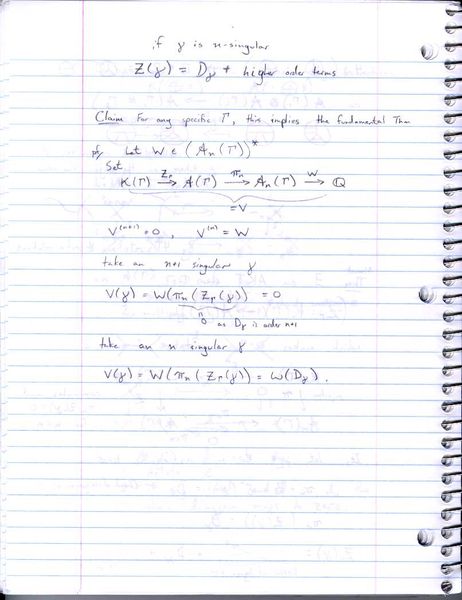 if γ is n-singular
Z(γ) = Dγ + higher order terms
Claim For any specific Γ, this implies the fundamental Thm
pf/ Let W ∈ (𝒜n(Γ))*
Set
K(Γ) →^{ZΓ} 𝒜(Γ) →^{πn} 𝒜n(Γ) →^{W} ℚ
=V
V^(n+1) = 0 , V^(n) = W
take an n+1 singular γ
V(γ) = W(πn(ZΓ(γ)) = 0
0 as Dγ is order n+1
take an n singular γ
V(γ) = W(πn(ZΓ(γ)) = W(Dγ).